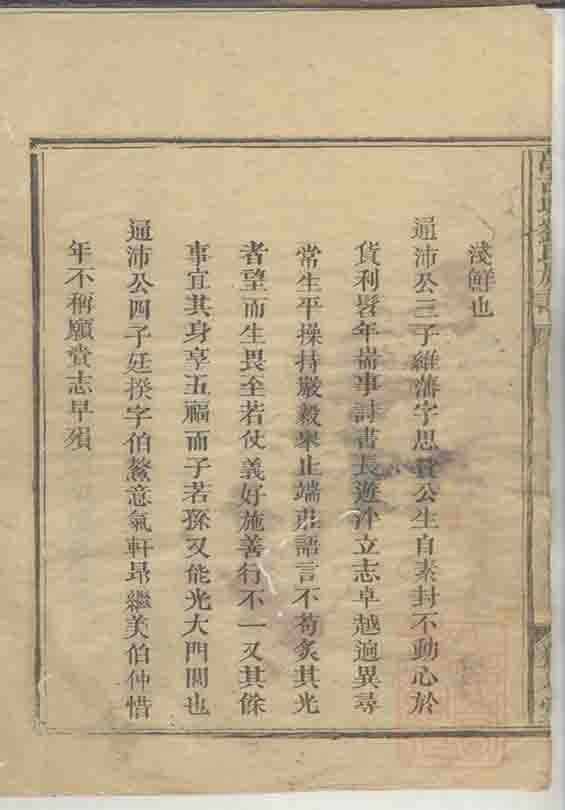 淺鮮也
通沛公三子維藩字思賁公生自素封不動心於
貨利髫年耑事詩書長遊泮立志卓越逈異尋
常生平操持嚴毅舉止端莊語言不苟炙其光
者望而生畏至若仗義好施善行不一又其餘
事宜其身享五福而子若孫又能光大門閭也
通沛公四子廷揆字伯鰲意氣軒昂繼美伯仲惜
年不稱願賫志早殞